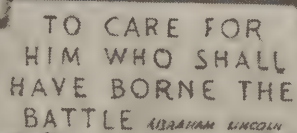 TO CARE FOR
HIM WHO SHALL
HAVE BORNE THE
BATTLE ABRAHAM LINCOLN